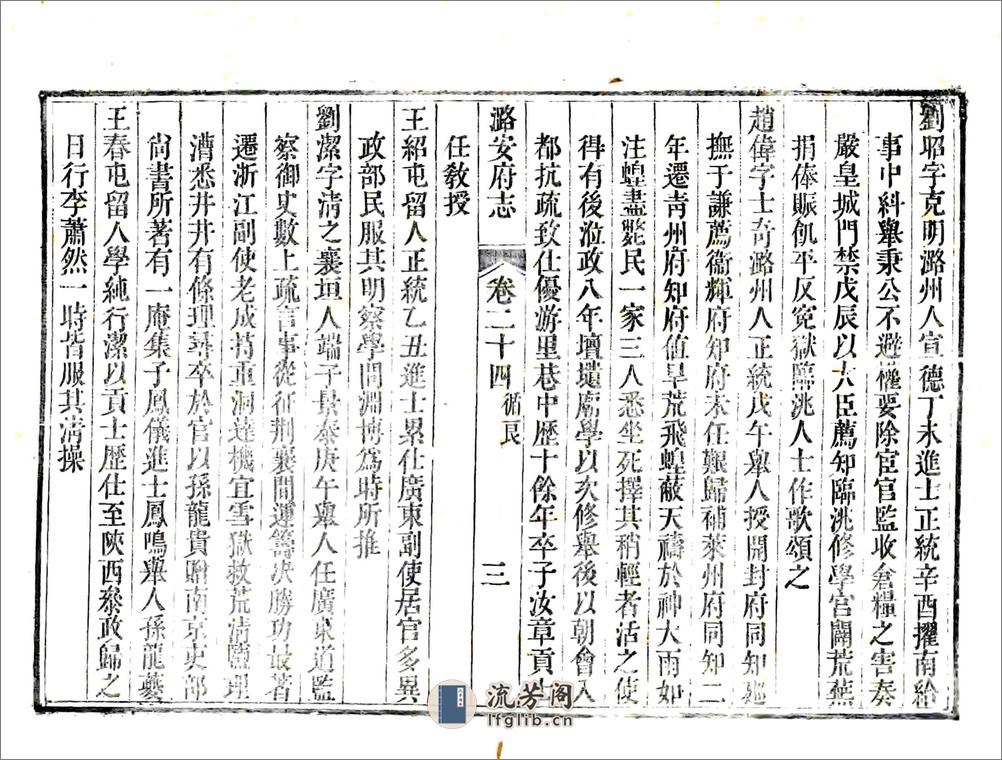 劉昭字克明潞州人宣德丁未進士正統辛酉擢南給
事中糾舉秉公不避權要除宦官監收倉糧之害奏
嚴皇城門禁戊辰以大臣薦知臨洮修學宮闢荒蕪
捐俸賑飢平反寃獄臨洮人士作歌頌之
趙偉字士奇潞州人正統戊午舉人授開封府同知廵
撫于謙薦衞輝府知府未任艱歸補萊州府同知二
年遷青州府知府值旱荒飛蝗蔽天禱於神大雨如
注蝗盡斃民一家三人悉坐死擇其稍輕者活之使
得有後涖政八年壇壝廟學以次修舉後以朝會入
都抗疏致仕優游里巷中歷十餘年卒子汝章貢士
任敎授
潞安府志
卷二十四
循良
三
王紹屯留人正統乙丑進士累仕廣東副使居官多異
政部民服其明察學問淵博爲時所推
劉潔字淸之襄垣人端子景泰庚午舉人任廣東道監
察御史數上疏言事從征荆襄間運籌决勝功最著
遷浙江副使老成持重洞達機宜雪獄救荒淸鹽理
漕悉井井有條理尋卒於官以孫龍貴贈南京吏部
尙書所著有一庵集子鳳儀進士鳳鳴舉人孫龍夔
王春屯留人學純行潔以貢士歷仕至陝西叅政歸之
日行李蕭然一時皆服其淸操
流芳阁
lfglib.cn